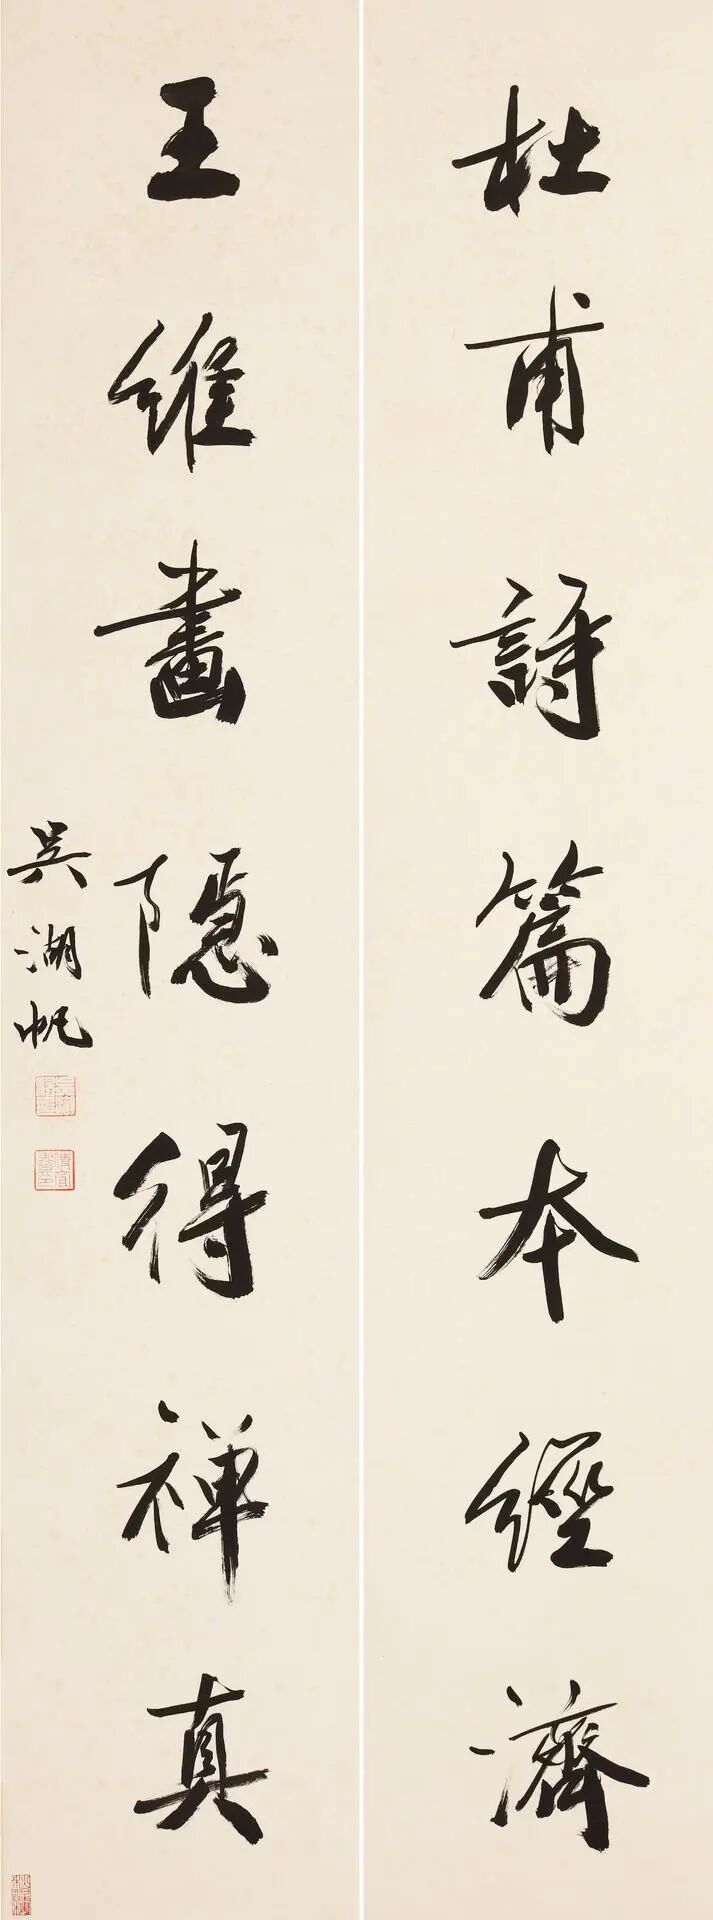 杜甫詩篇本經濟
王維畫隱得禪真
吳湖帆